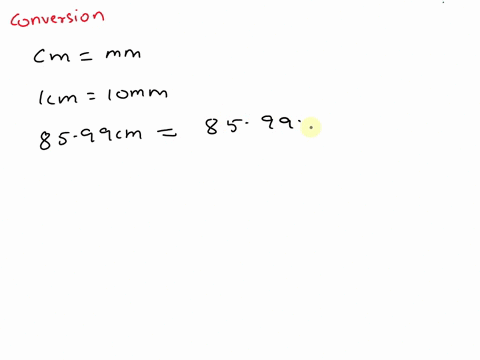 conversion
cm = mm
1cm = 10mm
85.99cm = 85.99.